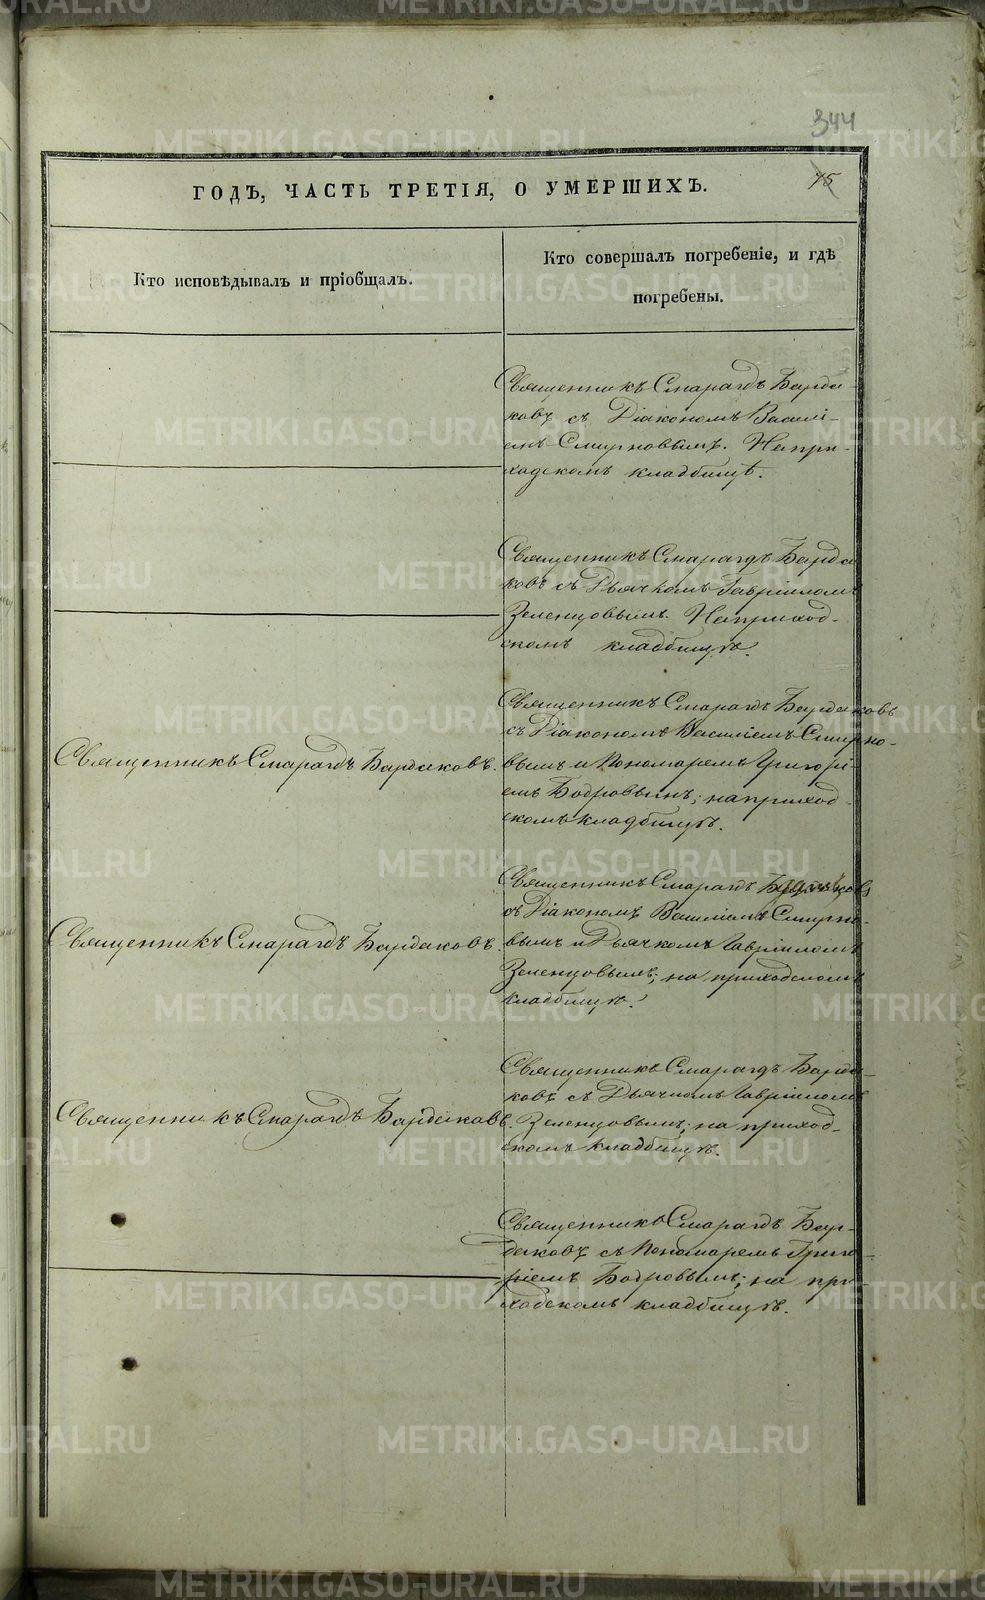 344
75
ГОДЪ, ЧАСТЬ ТРЕТІЯ, О УМЕРШИХЪ.
Кто исповѣдывалъ и пріобщалъ.
Кто совершалъ погребеніе, и гдѣ
погребены.
Священникъ Смарагдъ Барда-
ковъ съ Діакономъ Василі-
емъ Смирновымъ. На при-
ходскомъ кладбищѣ.
Священникъ Смарагдъ Барда
ковъ съ Дьячкомъ Гавріиломъ
Зеленцовымъ. На приход-
скомъ кладбищѣ.
Священникъ Смарагдъ Бардаковъ.
Священникъ Смарагдъ Бардаковъ
съ Діакономъ Василіемъ Смирно-
вымъ и Пономаремъ Григорі-
емъ Бодровымъ; на приход-
скомъ кладбищѣ.
Священникъ Смарагдъ Бардаковъ.
Священникъ Смарагдъ Бардаковъ
съ Діакономъ Василіемъ Смирно-
вымъ и Дьячкомъ Гавріиломъ
Зеленцовымъ; на приходскомъ
кладбищѣ.
Священникъ Смарагдъ Бардаковъ.
Священникъ Смарагдъ Барда-
ковъ съ Дьячкомъ Гавріиломъ
Зеленцовымъ; на приход-
скомъ кладбищѣ.
Священникъ Смарагдъ Бар-
даковъ съ Пономаремъ Григо-
ріемъ Бодровымъ; на при
ходскомъ кладбищѣ.
METRIKI.GASO-URAL.RU